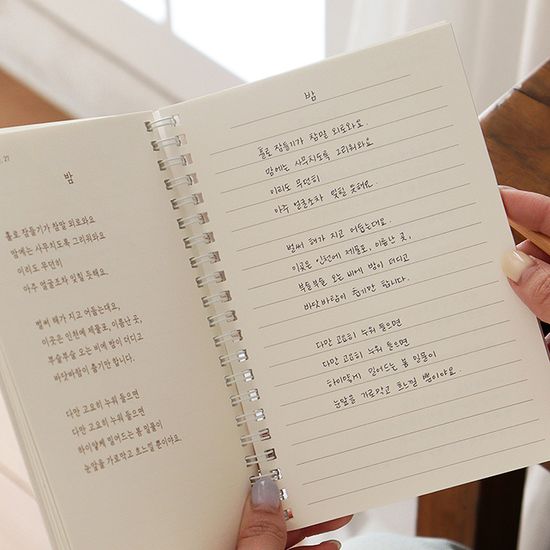 21
밤
홀로 잠들기가 참말 외로와요
맘에는 사무치도록 그리워와요
이리도 무던히
아주 얼굴조차 잊힐 듯해요.
벌써 해가 지고 어둡는대요,
이곳은 인천에 제물포, 이름난 곳,
부슬부슬 오는 비에 밤이 더디고
바닷바람이 춥기만 합니다.
다만 고요히 누워 들으면
다만 고요히 누워 들으면
하이얗게 밀어드는 봄 밀물이
눈앞을 가로막고 흐느낄 뿐이야요.
밤
홀로 잠들기가 참말 외로와요.
맘에는 사무치도록 그리워와요
이리도 무던히
아주 얼굴조차 잊힐 듯해요
벌써 해가 지고 어둡는데요.
이곳은 인천에 제물포, 이름난 곳,
부슬부슬 오는 비에 밤이 더디고
바닷바람이 춥기만 합니다.
다만 고요히 누워 들으면
다만 고요히 누워 들으면
하이얗게 밀어드는 봄 밀물이
눈앞을 가로막고 흐느낄 뿐이야요.